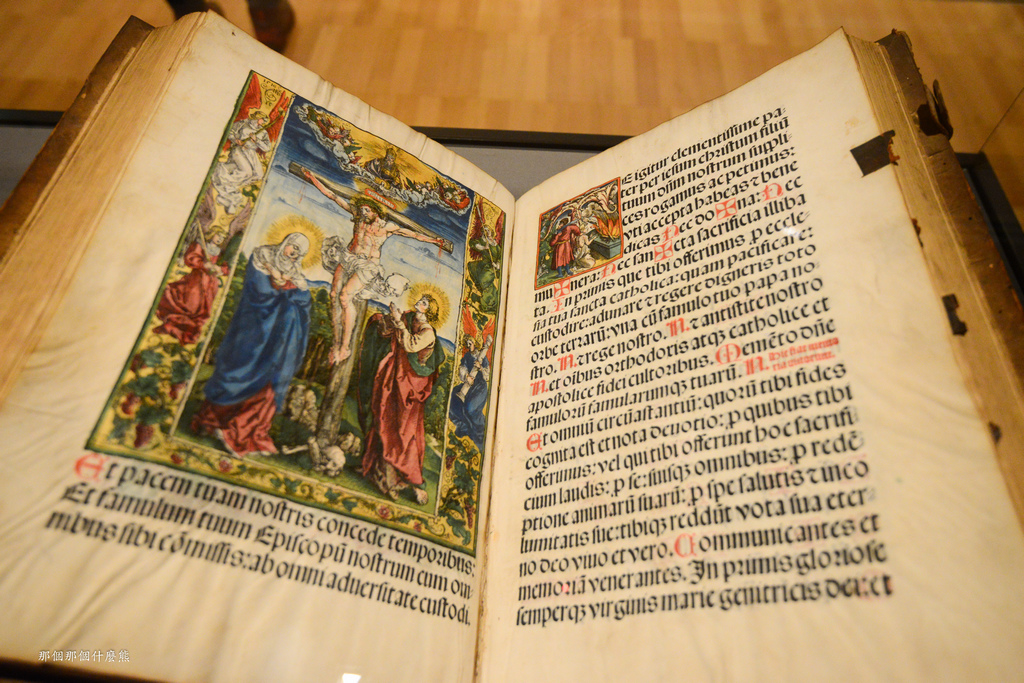 Et pacem tuam nostris concede temporibus:
Et famulum tuum Episcopū nostrum cum om
nibus sibi cōmissis: ab omni adversitate custodi.
E igitur clementissime pa-
ter per iesum christum filiū
tuum dñm nostrum suppli-
ces rogamus ac petimus:
vti accepta habeas ⁊ bene
dicas Hec do✠na: Hec
mu✠nera: Hec san✠cta sacrificia illiba
ta. In primis que tibi offerimus ꝓ eccle-
sia tua sancta catholica: quam pacificare:
custodire: adunare ⁊ regere digneris toto
orbe terrarū: vna cū famulo tuo papa no-
stro. N. ⁊ rege nostro. N. ⁊ antistite nostro
N. et oībus orthodoxis atqꝫ catholice et
apostolice fidei cultoribus. Memēto dñe
famulorū famularumqꝫ tuarū. N.
Et omniū circūastantiū: quorū tibi fides
cognita est et nota deuotio: ꝓ quibus tibi
offerimus: vel qui tibi offerunt hoc sacrifi-
cium laudis: ꝓ se: suisqꝫ omnibus: ꝓ redē-
ptione animarū suarū: ꝓ spe salutis ⁊ inco
lumitatis sue: tibiqꝫ reddūt vota sua eter-
no deo viuo et vero. Communicantes et
memoriā venerantes. In primis gloriose
semperqꝫ virginis marie genitricis dei: et
那個那個什麼熊